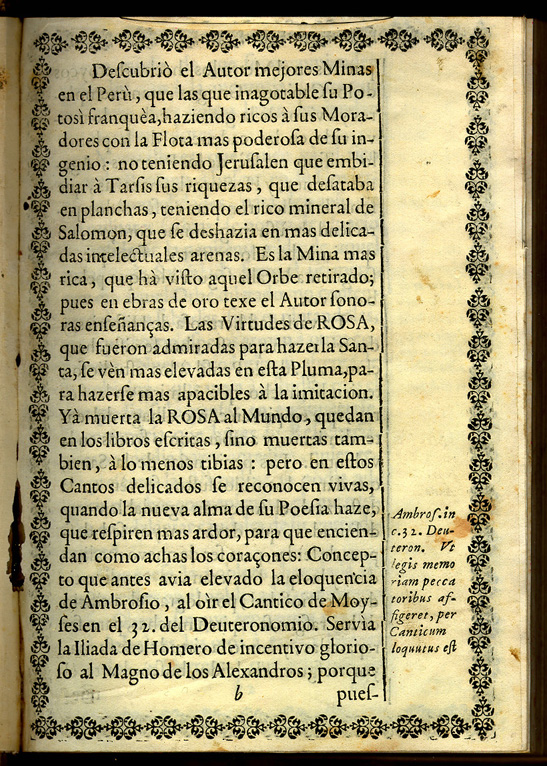 Deſcubriò el Autor mejores Minas
en el Perù, que las que inagotable ſu Po-
tosì franquèa, haziendo ricos à ſus Mora-
dores con la Flota mas poderoſa de ſu in-
genio : no teniendo Jeruſalen que embi-
diar à Tarſis ſus riquezas, que deſataba
en planchas, teniendo el rico mineral de
Salomon, que ſe deshazia en mas delica-
das intelectuales arenas. Es la Mina mas
rica, que hà viſto aquel Orbe retirado;
pues en ebras de oro texe el Autor ſono-
ras enſeñanças. Las Virtudes de ROSA,
que fueron admiradas para hazer la San-
ta, ſe vèn mas elevadas en eſta Pluma, pa-
ra hazerſe mas apacibles à la imitacion.
Yà muerta la ROSA al Mundo, quedan
en los libros eſcritas, ſino muertas tam-
bien, à lo menos tibias : pero en eſtos
Cantos delicados ſe reconocen vivas,
quando la nueva alma de ſu Poeſia haze,
que reſpiren mas ardor, para que encien-
dan como achas los coraçones: Concep-
to que antes avia elevado la eloquencia
de Ambroſio, al oìr el Cantico de Moy-
ſes en el 32. del Deuteronomio. Servia
la Iliada de Homero de incentivo glorio-
ſo al Magno de los Alexandros; porque
b
pueſ-
Ambroſ. in
c. 32. Deu-
teron. Vt
legis memo
riam pecca
toribus af-
figeret, per
Canticum
loquutus eſt